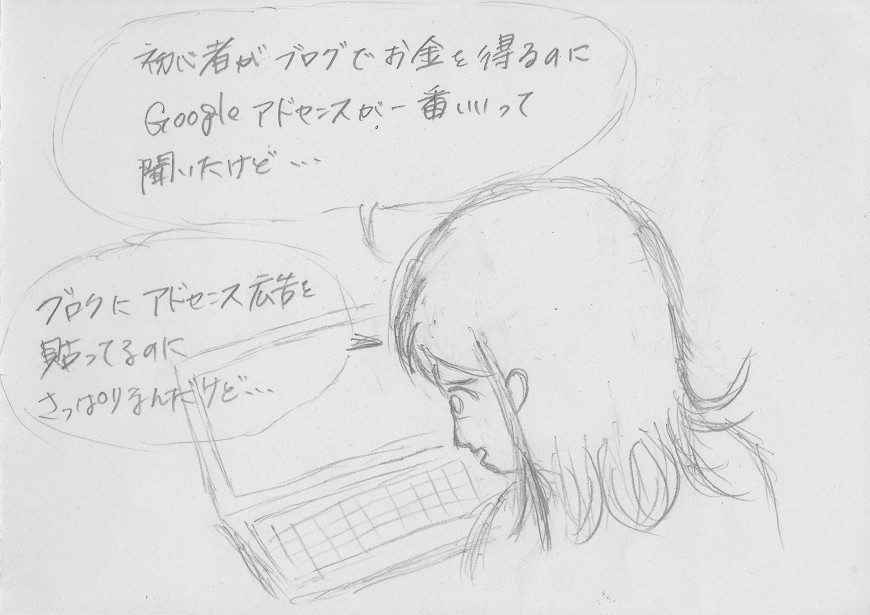 初心者がブログでお金を得るのに
Googleアドセンスが一番いいって
聞いたけど…
ブログにアドセンス広告を
貼ってるのに
さっぱりなんだけど…